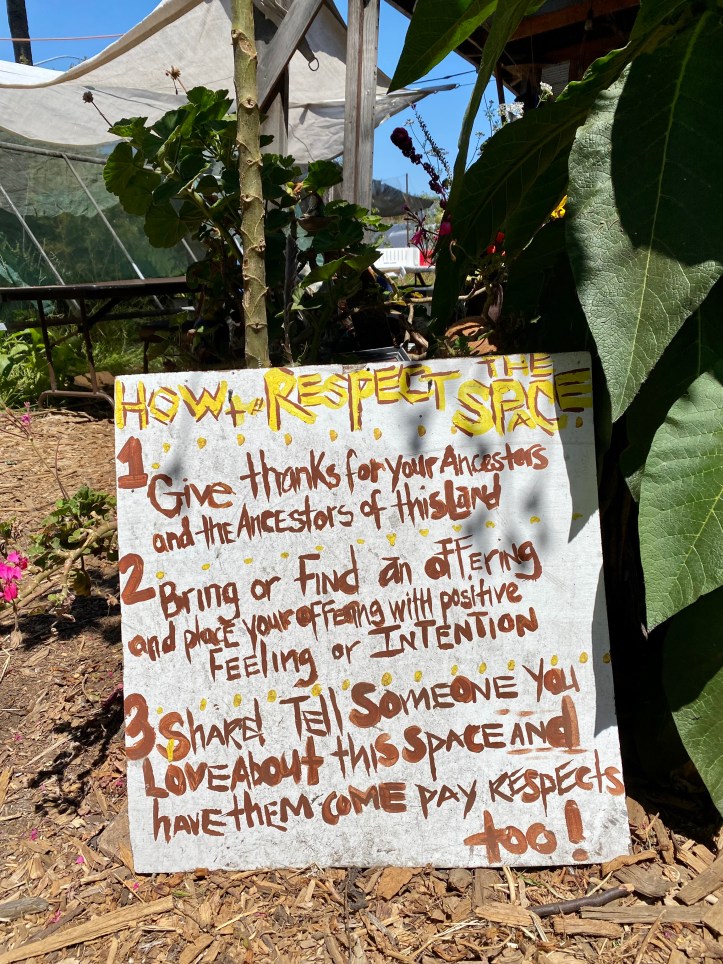 HOW to RESPECT THE SPACE
1 Give thanks for your Ancestors
and the Ancestors of this Land
2 Bring or find an offering
and place your offering with positive
Feeling or INTENTION
3 Share Tell SOMEONE YOU
LOVE About this SPACE AND
HAVE them COME PAY RESPECTS
too!